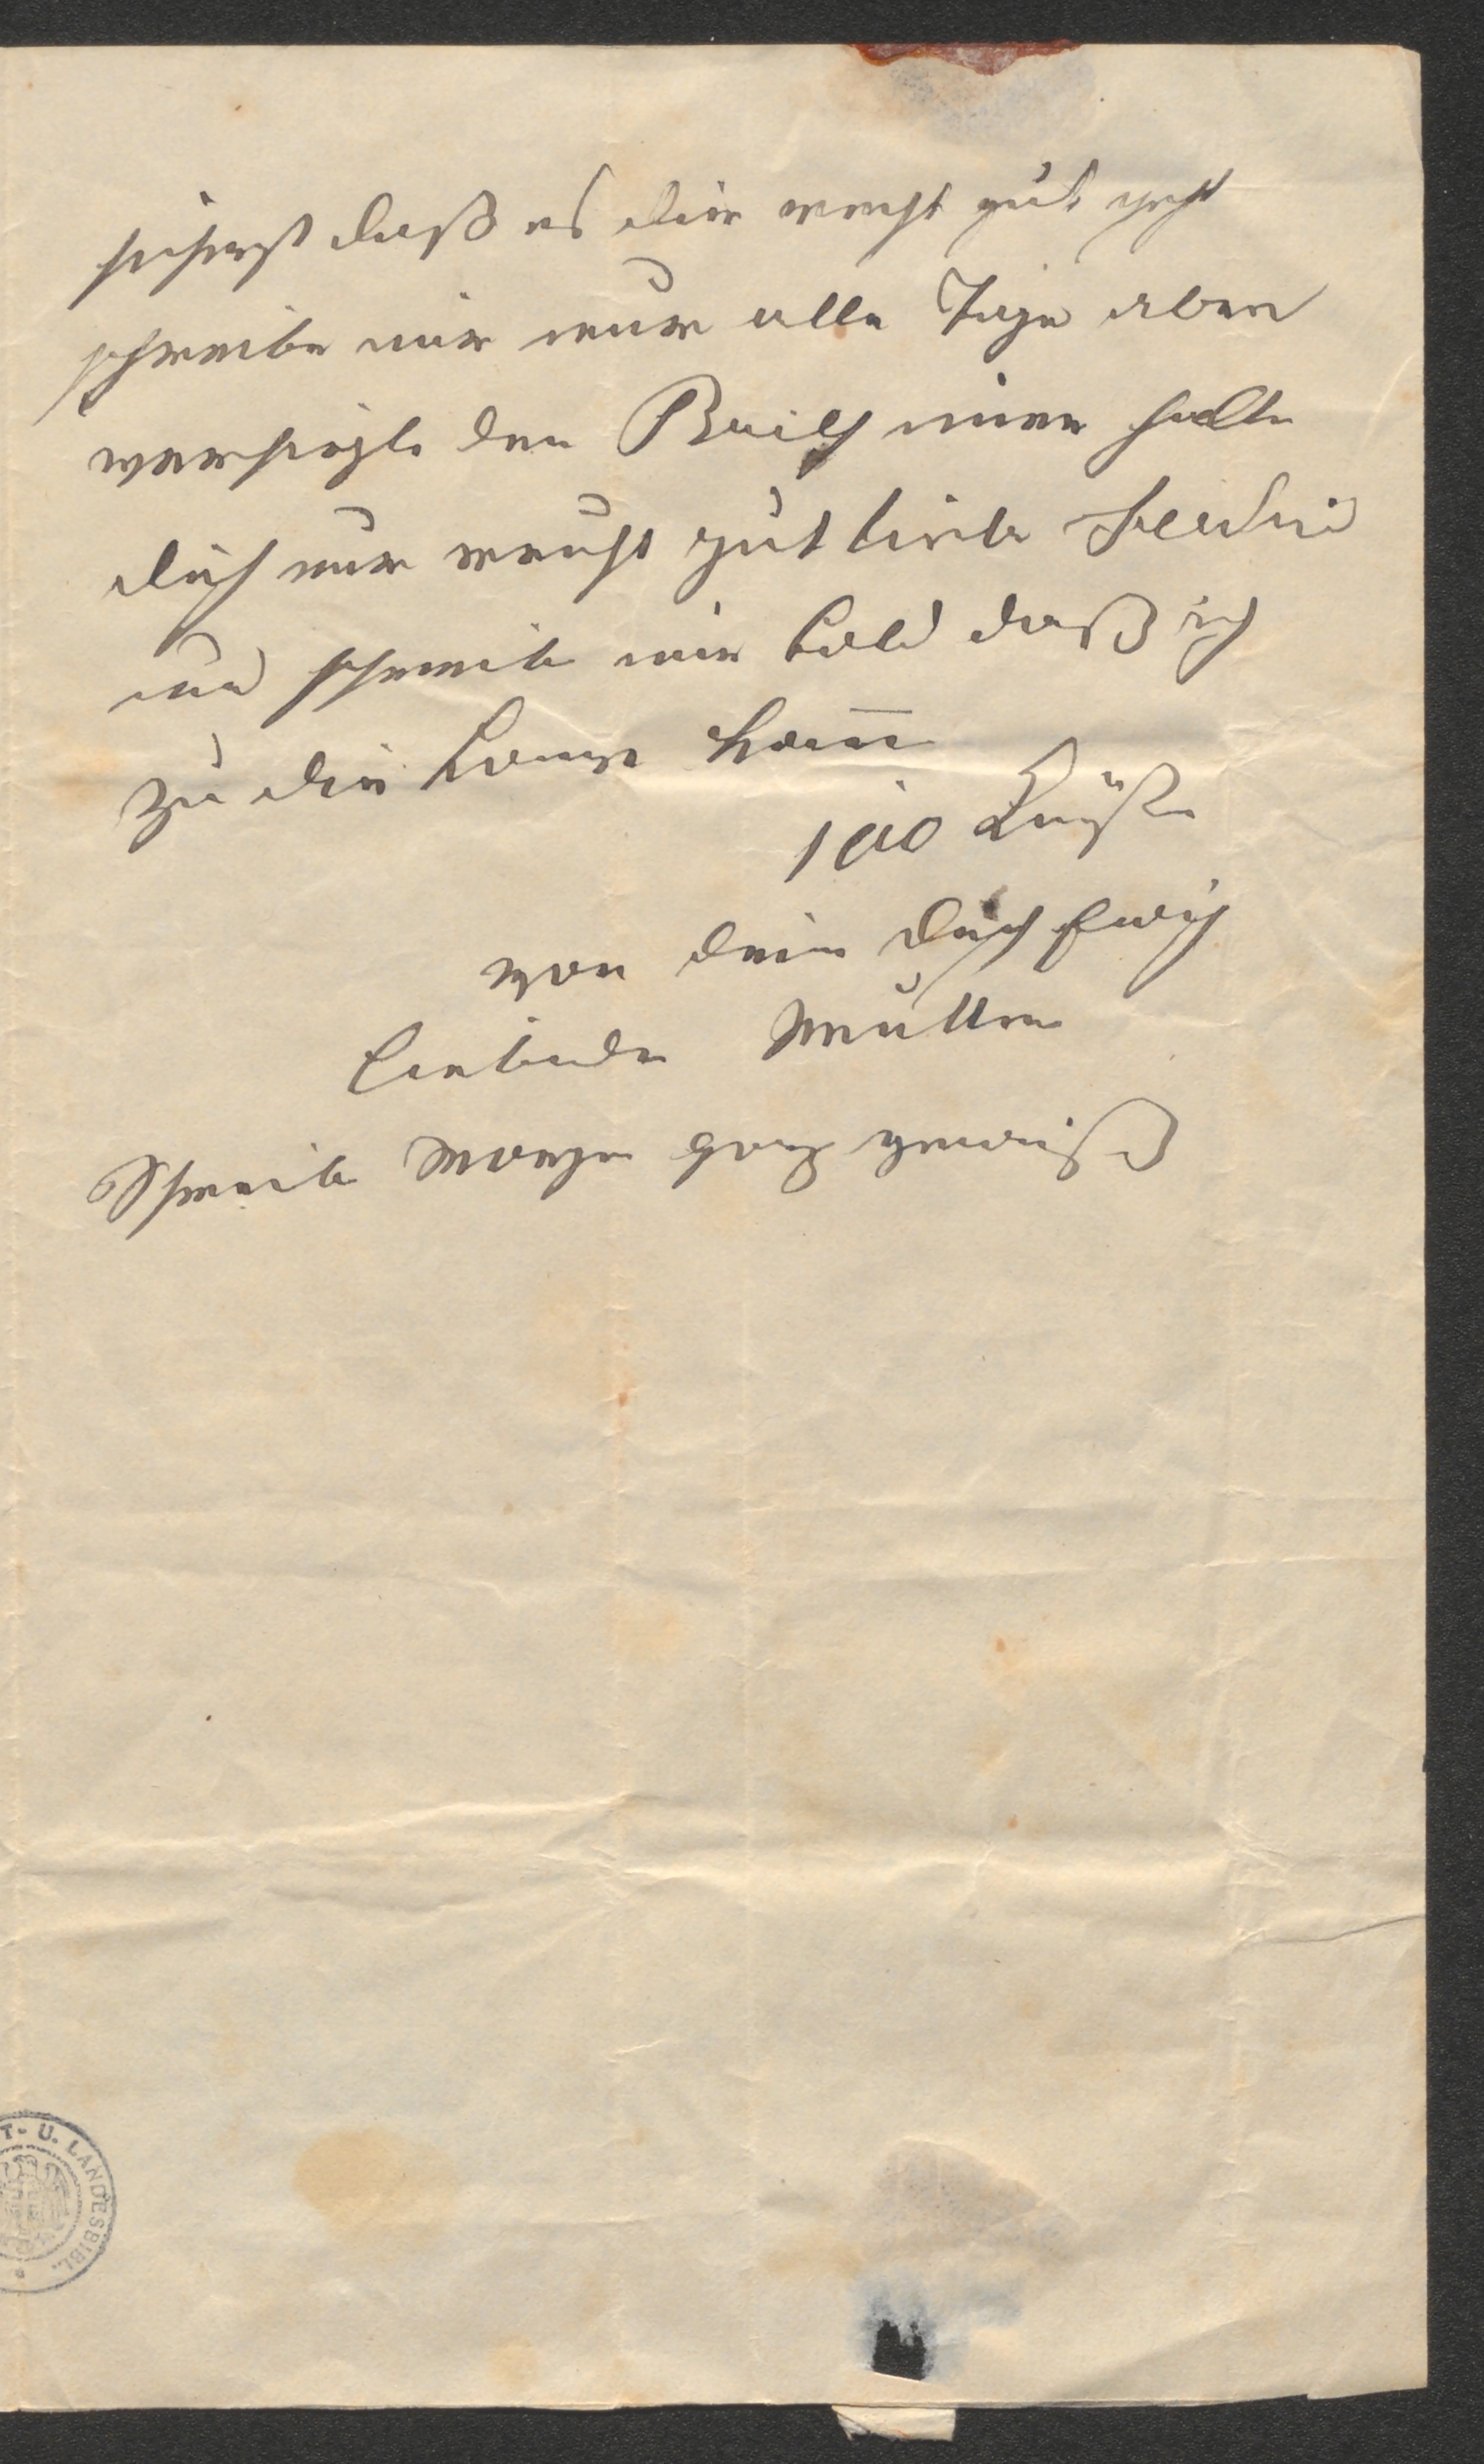 siehest daß es dier recht gut geht
schreibe mir nur alle Tage aber
versigle den Brief imer halte
dich nur recht gut liebe
und schreibe mir bald daß ich
zu dir komen kan̄
100 Küße
von dein dich Ewig
Liebende Mutter
Schreibe Morgen ganz gewiß
T- U. LANDESBIBL.